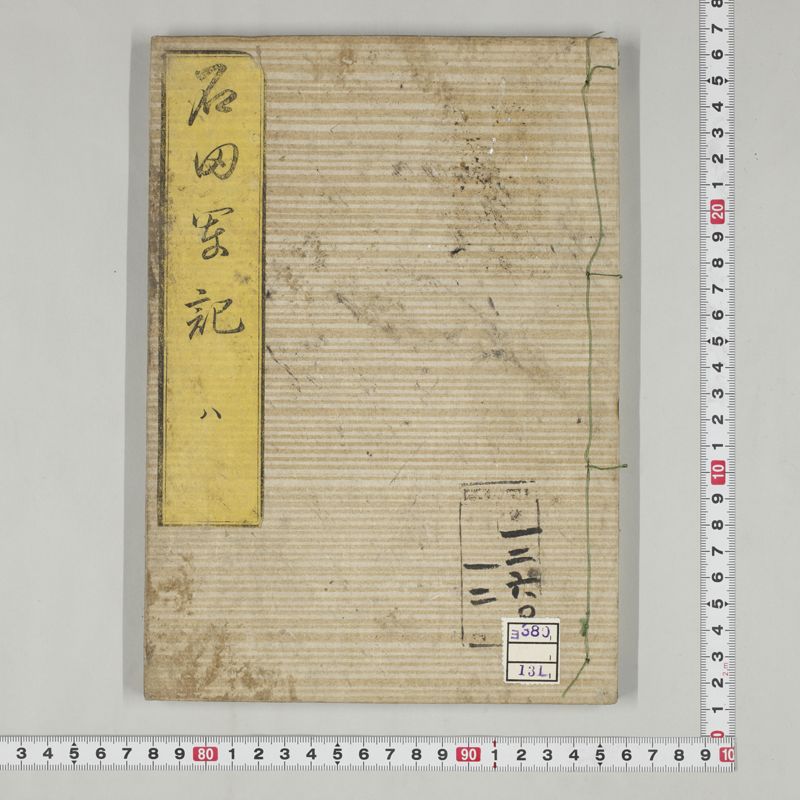 石田軍記
八
一三六〇
一二
E380
131
8
7
6
5
4
3
2
1
20
9
8
7
6
5
4
3
2
1
10
9
8
7
6
5
4
3
2
1
0
3 4 5 6 7 8 9 80 1 2 3 4 5 6 7 8 9 90 1 2 3 4 5 6 7 8 9 10